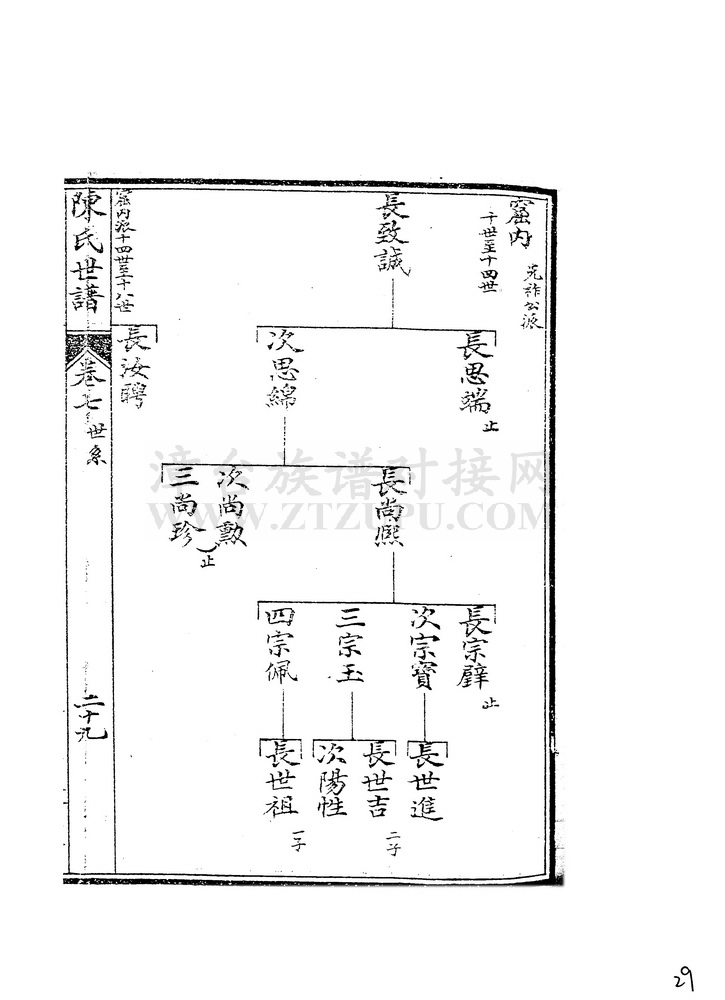 窟内
克祚公派
十世至十四世
長致誠
長思端
止
次思綿
長尚熈
次尚勲
三尚珍
止
長宗璧
止
次宗寶
三宗玉
四宗佩
長世進
長世吉
二子
次陽性
長世祖
一子
窟内派十四世至十八世
長汝聘
陳氏世譜
卷七
世系
二十九
漳台族谱对接网
WWW.ZTZUPU.COM
29